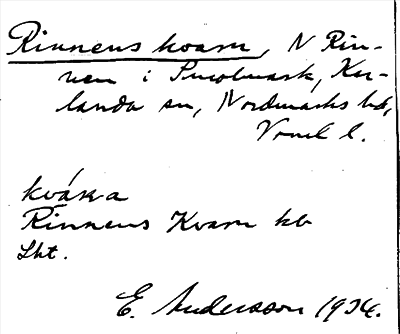 Rinnens kvarn, N Rin-
nen i Smolmark, Kar-
landa sn, Nordmarks hd,
Vrml l.
kvárna
Rinnens Kvarn kb
Lht.
E. Andersson 1934.